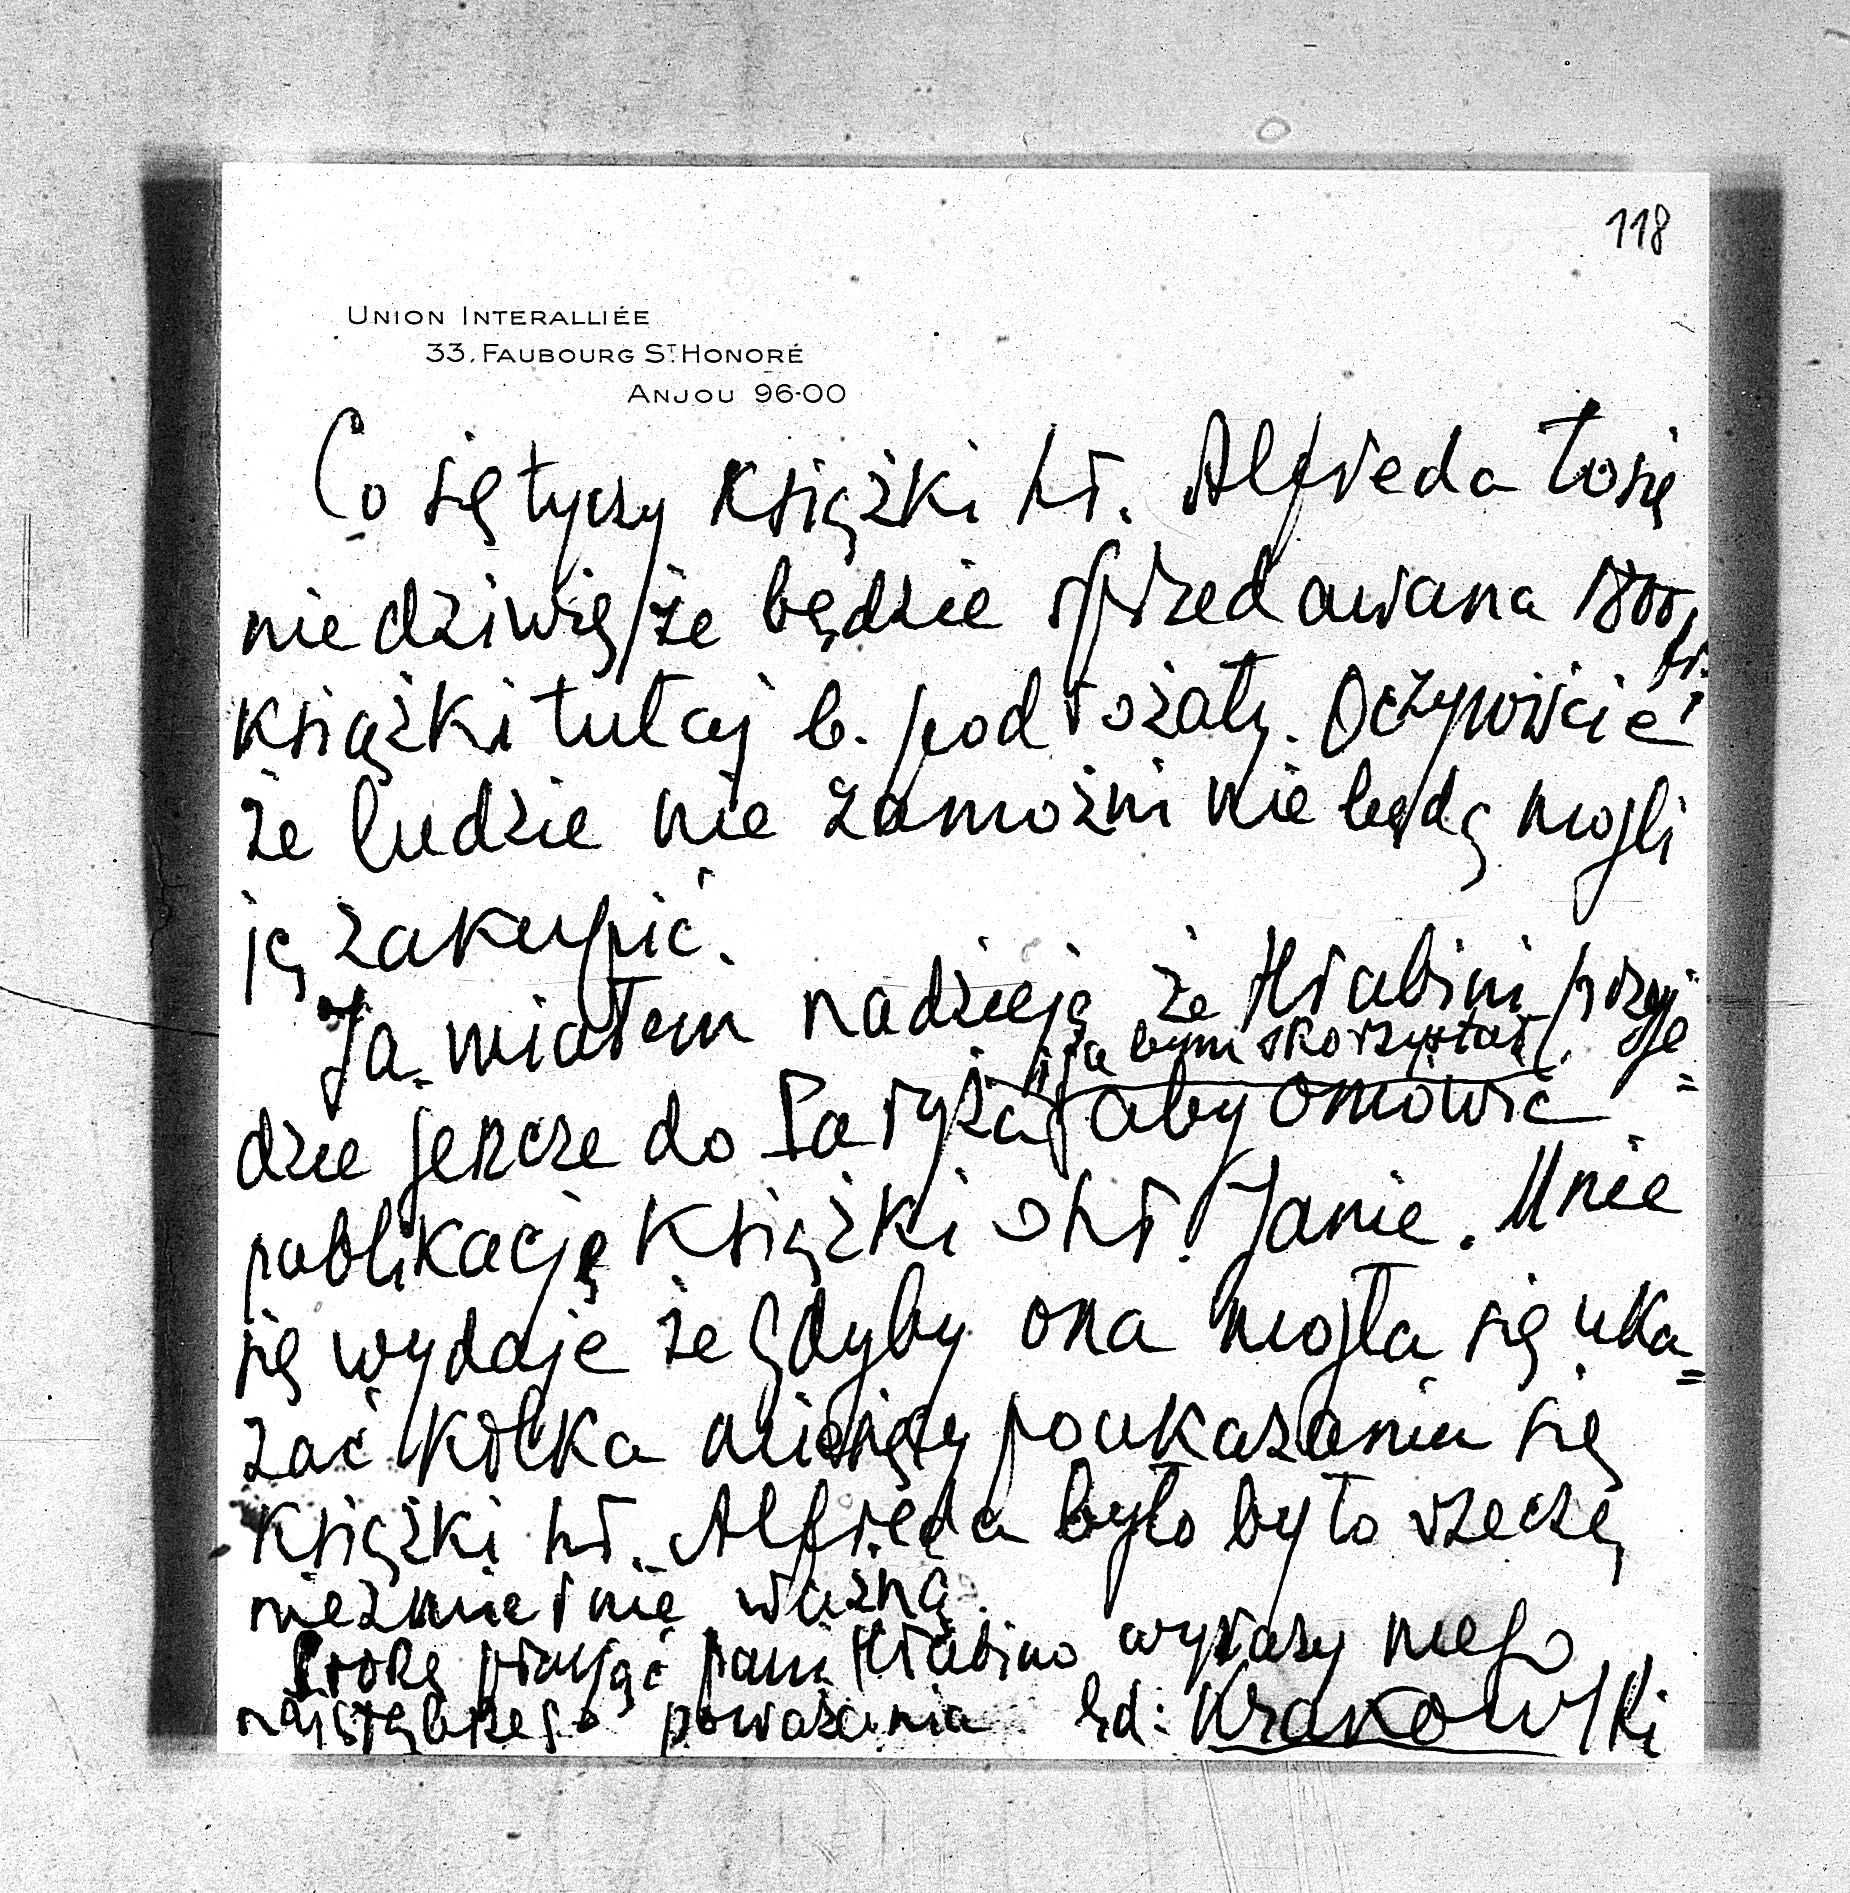 118
UNION INTERALLIÉE
33, FAUBOURG ST. HONORÉ
ANJOU 96-00
Co się tyczy książki hr. Alfreda to się
nie dziwię że będzie sprzedawana 1800
fr.
książki tutaj b. podrożały. Oczywiście
że ludzie nie zamożni nie będą mogli
ją zakupić.
Ja miałem nadzieję że Hrabini przyje
i ja bym skorzystał
dzie jeszcze do Paryża aby omówić
publikację książki o hr. Janie. Mnie
się wydaje że gdyby ona mogła się uka=
zać kilka miesięcy po ukazaniu się
książki hr. Alfreda było by to rzeczą
niezmiernie ważną.
Proszę przyjąć pani Hrabino wyrazy mego
najgłębszego poważania Ed: Krakowski